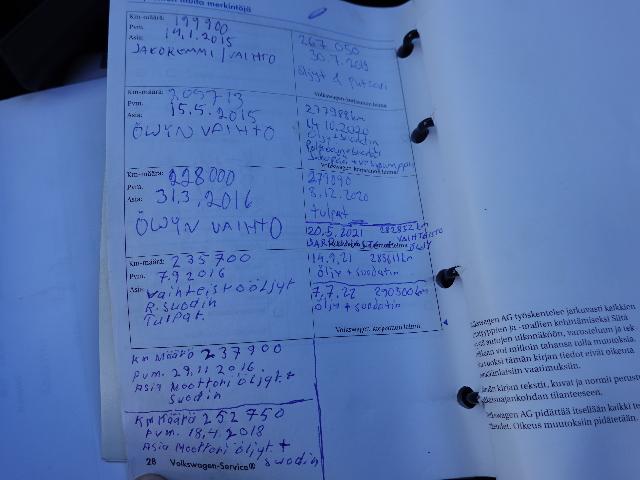 muita merkintöjä
Km-määrä: 199900
Pvm. 14.1.2015
Asia: JAKOREMMI / VAIHTO
Km-määrä: 205713
Pvm. 15.5.2015
Asia: ÖLJYN VAIHTO
Km-määrä: 228000
Pvm. 31.3.2016
Asia: ÖLJYN VAIHTO
Km-määrä: 235700
Pvm. 7.9.2016
Asia: Vaihteistoöljyt
R.suodin
Tulpat.
Km Määrä 237900
Pvm. 29.11.2016.
Asia Moottori öljyt +
Suodin
Km Määrä 252750
Pvm. 18.4.2018
Asia Moottori öljyt +
suodin
28 Volkswagen-Service®
267 050
30.7.2019
öljyt &
277988km
14.10.2020
Öljy + suodin
279090
8.12.2020
tulpat
20.5.2021 282852 km
VAIHTEISTO
ÖLJY
14.9.21 285611km
öljy + suodatin
7.7.22 290300km
öljy + suodatin
Volkswagen-korjaamon leima
Volkswagen AG työskentelee jatkuvasti kaikkien
tyyppien ja -mallien kehittämiseksi. Siitä
autojen ulkonäköön, varusteluun ja tek
voi milloin tahansa tulla muutoksia.
tämän kirjan tiedot eivät oikeuta
vaatimuksiin.
kirjan tekstit, kuvat ja normit perustu
ajankohdan tilanteeseen.
Volkswagen AG pidättää itsellään kaikki te
Oikeus muutoksiin pidätetään.